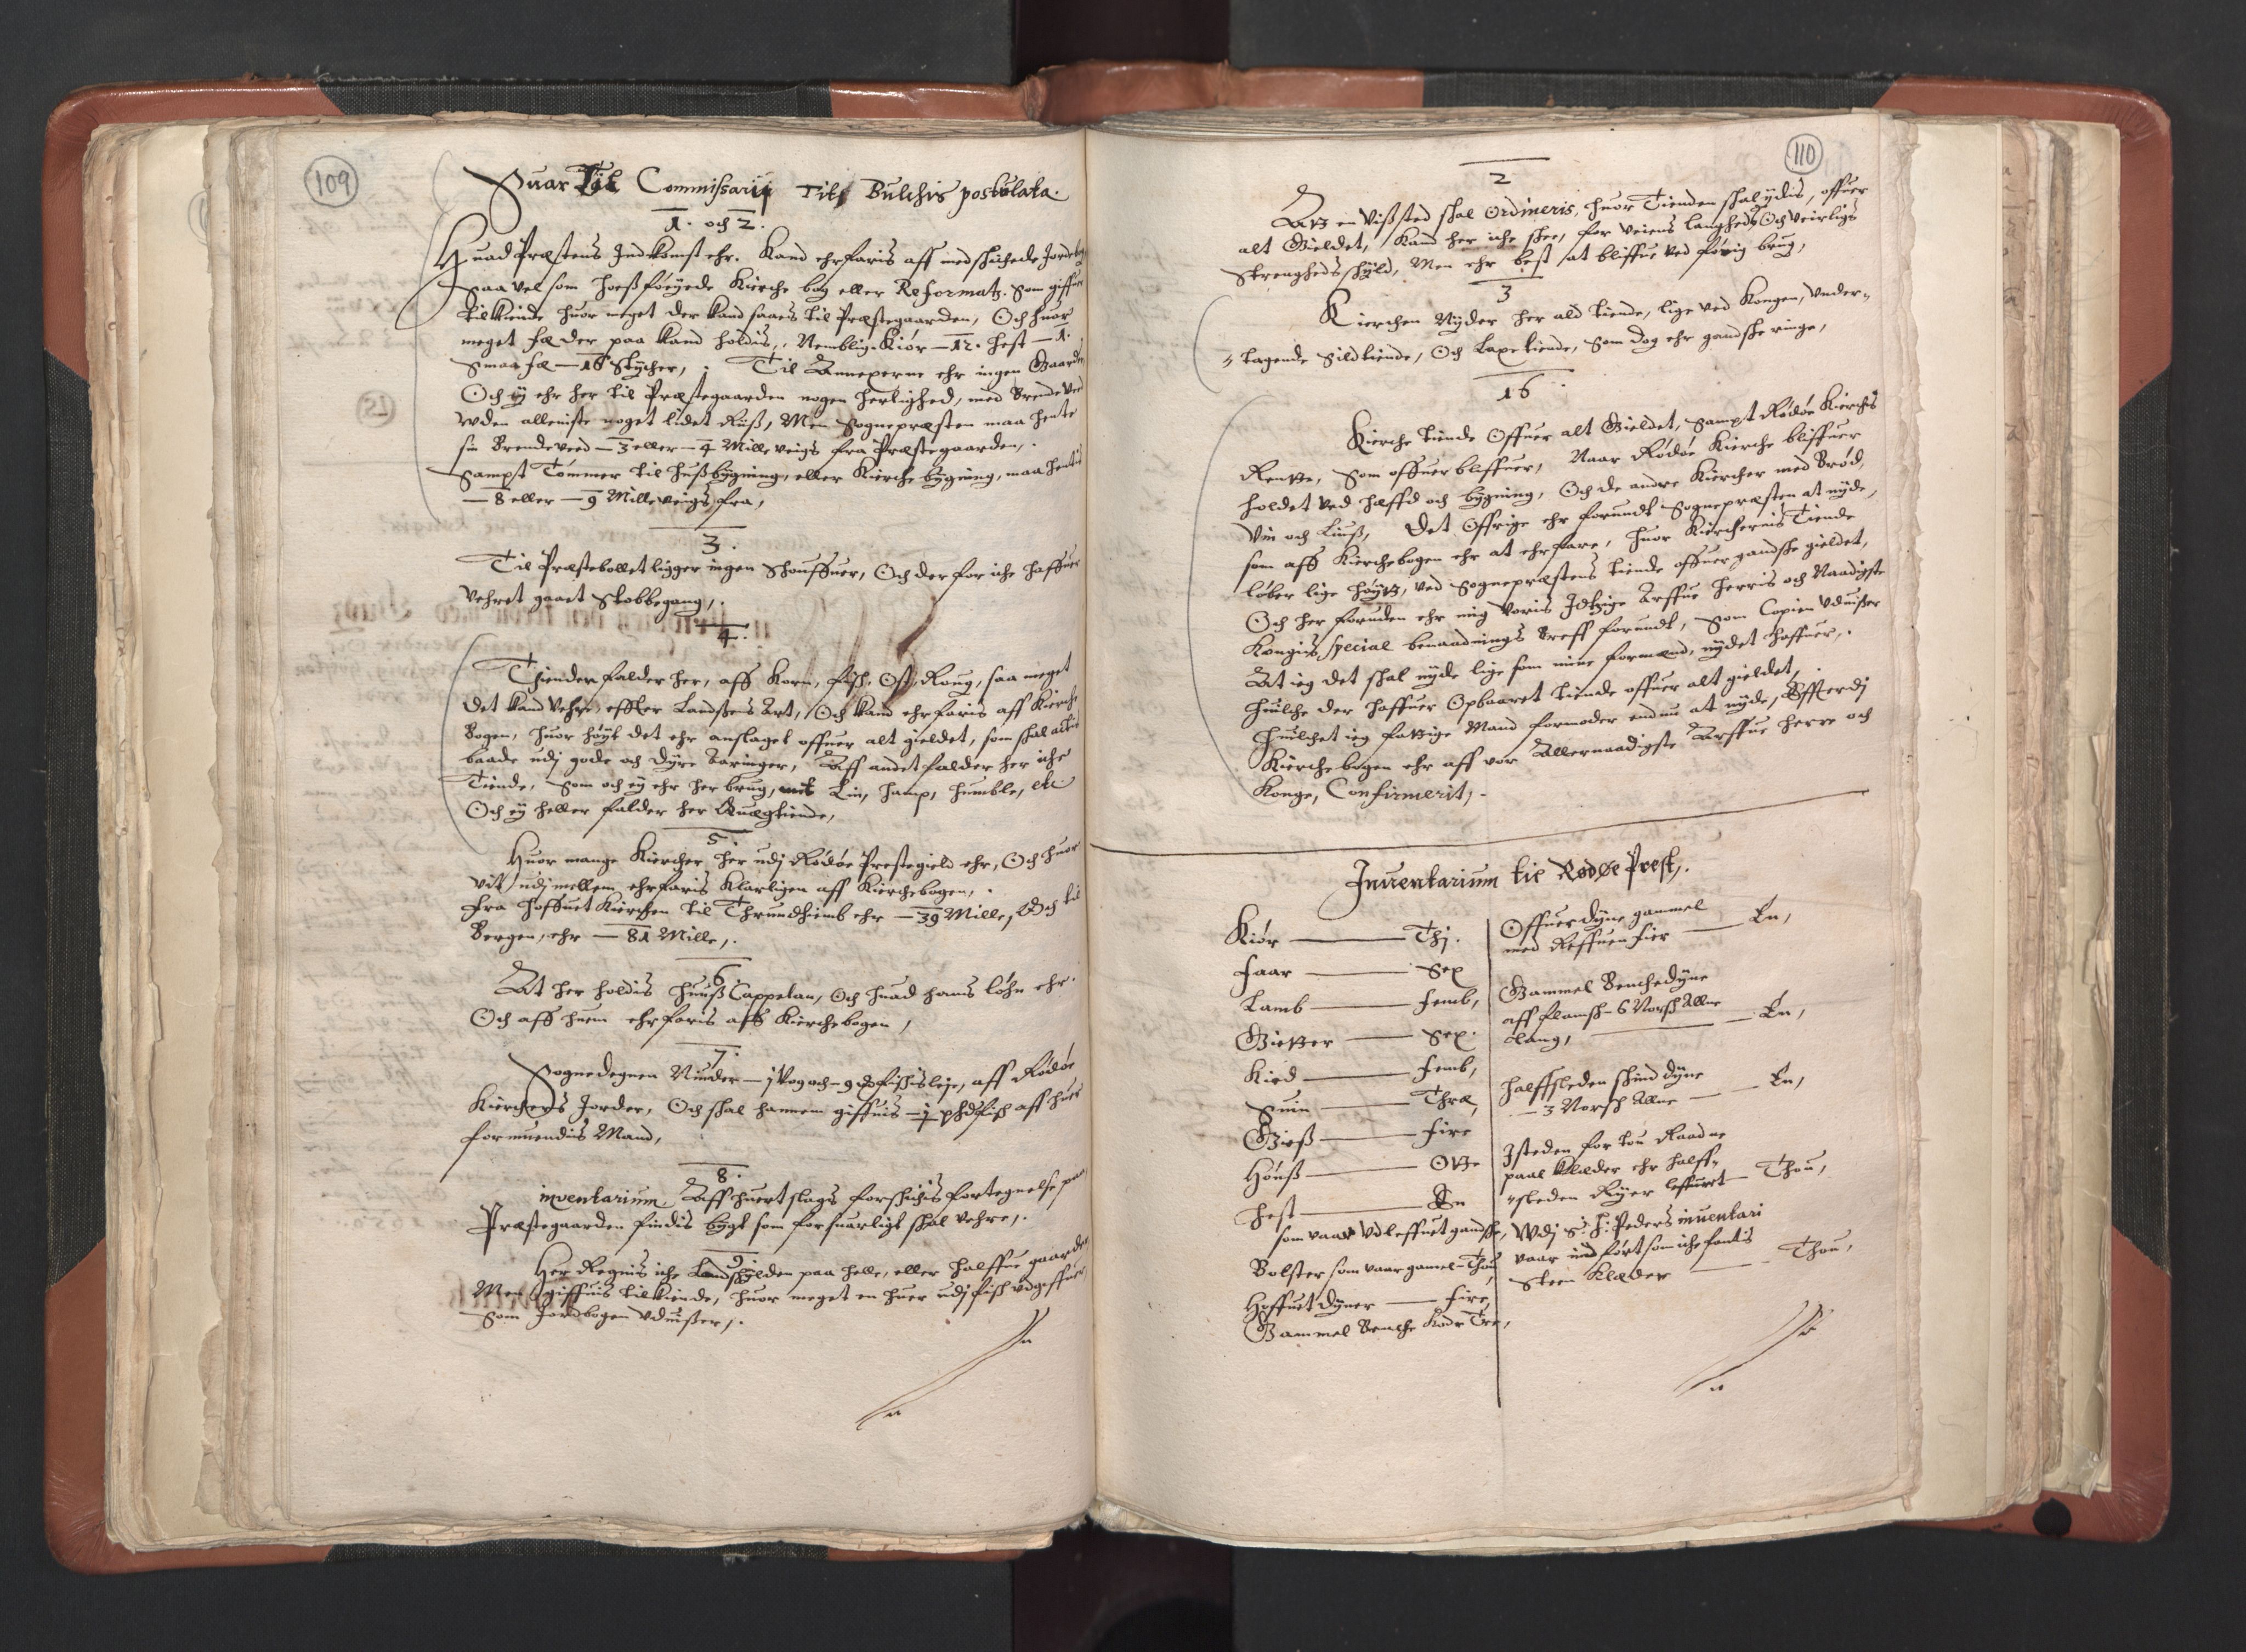 109
Suar Til Commissarij Tits Bulchis postulata.
1. och 2.
Huad Præstens Indkomst ehr. Kand ehrfaris aff medschichede Jordebog
Saa vel som hoeßföyede Kirche bog eller Reformatz. Som giffuer
tilkiende huor meget der kand saaes til Præstegaarden, Och huor
meget fæ der paa kand holdis, Nemblig. Kiör — 12. hest — 1.
Smaa fæ — 16 Stÿcher, Til Annexerne ehr ingen Gaarde
Och ÿ ehr her til Præstegaarden nogen herlighed, med Brendeved
Vden alleniste noget lidet Riiß, Men Sognepræsten maa hente
sin Brendeved — 3 eller — 4 Mille veigs fra Præstegaarden,
Sampt Tömmer til Hußbÿgning, eller Kirche bÿgning, maa hentis
— 8 eller — 9 Mille veigs fra,
3.
Til Præstebollet ligger ingen Skouffuer, Och der for iche haffuer
Vehret gaaet Stobbegang,
4.
Thiender falder her, aff Korn, fisch, Ost, Roug, saa meget
det kand vehre effter Landßens Art, Och kand ehrfaris aff Kirche
Bogen, huor höÿt det ehr anslaget offuer alt gieldet, som skal actis
baade udj gode och dÿre Aaringer, Aff andet falder her iche
Tiende, Som och ÿ ehr her brug, mit Lin, Hamp, Humble, etc
Och ÿ heller falder her Quægtiende,
5.
Huor mange Kircher her udj Rödöe Prestegield ehr, Och huor
vit udjmellem ehrfaris klarligen aff Kirchebogen,
Fra Hoffuet Kirchen til Thrundhiemb ehr — 39 Mille, Och til
Bergen, ehr — 81 Mille,
6.
At her holdis Huuß Cappelan, Och huad hans löhn ehr.
Och aff huem ehrfaris aff Kirchebogen,
7.
Sognedegnen Niuder — j Vog och — 9 fischisleje, aff Rödöe
Kirches Jorder, Och skal hannem giffuis — j pfisch aff huer
formuendis Mand,
8.
inventarium Aff huert slags forskichis fortegnelse paa
Præstegaarden findis bÿgt som forsuarligt skal vehre,
9.
Her Regnis iche Landskÿlden paa helle, eller halffue gaarde
Men giffuis tilkiende, huor meget en huer udj fisk udgiffuer
Som Jordbogen uduißer,
110
2
At en viß sted skal ordineris, huor Tienden skal ÿdis, offuer
alt Gieldet, kand her iche skee, for veiens langheds Och veirligs
Strengheds skÿld, Men ehr best at bliffue ved förrig brug,
3
Kierchen Nÿder her ald tiende, lige ved Kongen, Under-
tagende Sildtiende, Och Laxetiende, som dog ehr gandske ringe,
16
Kirche tiende Offuer alt Gieldet, Sampt Rödöe Kirchis
Rentte, Som offuerbliffuer, Naar Rödöe Kirche bliffuer
holdet ved hæffd och bÿgning, Och de andre Kircher med Bröd,
Vin och Liuß, Det Offrige ehr forundt Sognepræsten at nÿde,
som aff Kirchebogen ehr at ehrfare, huor Kirchernis Tiende
löber lige höÿtt, ved Sognepræstens tiende offuer gandske gieldet,
Och her foruden ehr mig Voris Itzige Arffue Herris och Naadigste
Kongis special benaadnings Breff forundt, Som Copien Vduißer
At ieg det skal nÿde lige som mine formænd, nÿdet haffuer,
Huilche der haffuer Opbaaret tiende offuer alt gieldet,
Huilchet ieg fattige Mand formoder endnu at nÿde, Effterdj
Kirchebogen ehr aff vor Allernaadigste Arffue Herre och
Konge, Confirmerit,
Inventarium til Rødøe Prest,
Kiör — Thj.
Faar — Sex
Lamb — Femb,
Gietter — Sex.
Kied — Femb,
Suin — Thre,
Gieß — Fire
Hönß — Otte
Hest — En
som vaar vdleffuet gandske,
Bolster som vaar gamel — Thou
Hoffuet dÿner — Fire,
Gammel Benche Kodr Tre,
Offuerdÿne gammel
med Reffuen fier — En,
Gammel Benchedÿne
aff flamsk — 6 Norsk Allne
Lang, — En,
Halffsleden skind dÿne
— 3 Norsk Allne — En,
Isteden for tou Raadne
paal Klæder ehr halff-
sleden Rÿer leffuert — Thou,
Udj S. H: Peders inuentari
vaar ind fört som iche fantis
Steen Klæder — Thou,